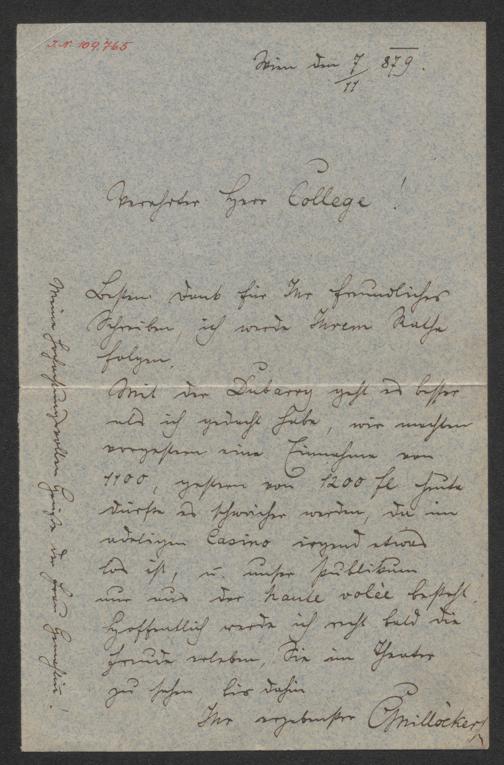 J.N. 109.765
Wien den 7/11 879.
Verehrter Herr College!
Besten Dank für Ihr freundliches
Schreiben, ich werde Ihrem Rathe
folgen.
Mit der Dubarry geht es besser
als ich gedacht habe, wir machten
vorgestern eine Einnahme von
1100, gestern von 1200 fl heute
dürfte es schwächer werden, da im
adeligen Casino irgend etwas
los ist, u. unser Publikum
nur aus der haute volée besteht.
Hoffentlich werde ich recht bald die
Freude erleben, Sie im Theater
zu sehen bis dahin
Ihr ergebenster CMillöcker
Meine hochachtungsvollen Grüße der Frau Gemahlin!